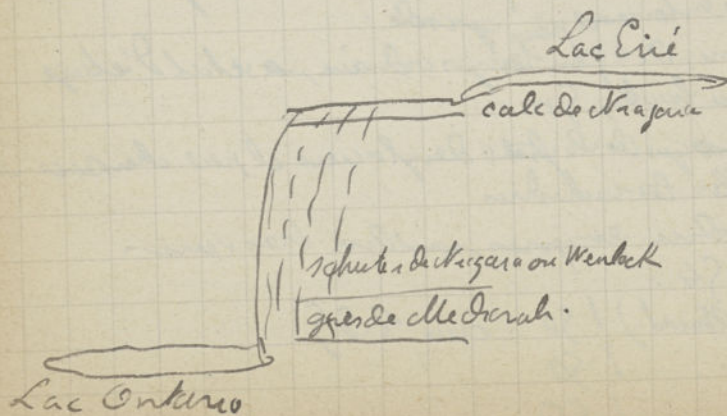 Lac Erié
calc de Niagara
schistes de Niagara ou Wenlock
gres de Medinah.
Lac Ontario